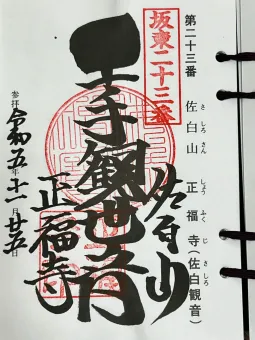 第二十三番
佐白山 正福寺(佐白観音)
さ しろ さん しょう ふく じ さ しろ
坂東二十三番
佐白山
千手観世音
正福寺
参拝 令和五年十一月廿五日